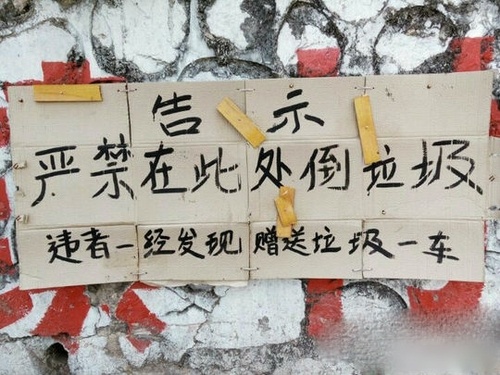 告示
严禁在此处倒垃圾
违者一经发现赠送垃圾一车